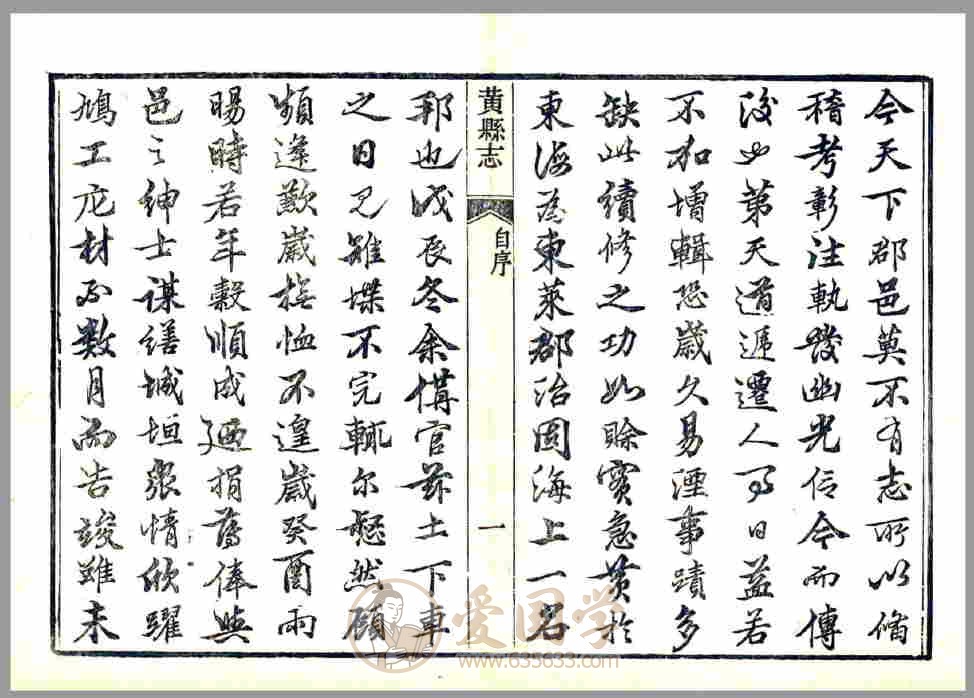 今天下郡邑莫不有志所以備
稽考彰往執發幽光信今而傳
後也第天道遞遷人事日益若
不加增輯恐歲久易湮事蹟多
缺此續修之功如賒實急黄於
東海為東萊郡治固海上一名
黄縣志
自序
一
邦也戊辰冬余備官茲土下車
之日見雉堞不完輒尔愁然顧
頻逢歉歲撫恤不遑歲癸酉雨
暘時若年穀順成廼捐薄俸與
邑之紳士謀繕城垣衆情欣躍
鳩工庀材不数月而告竣雖未
爱国学
www.635633.com